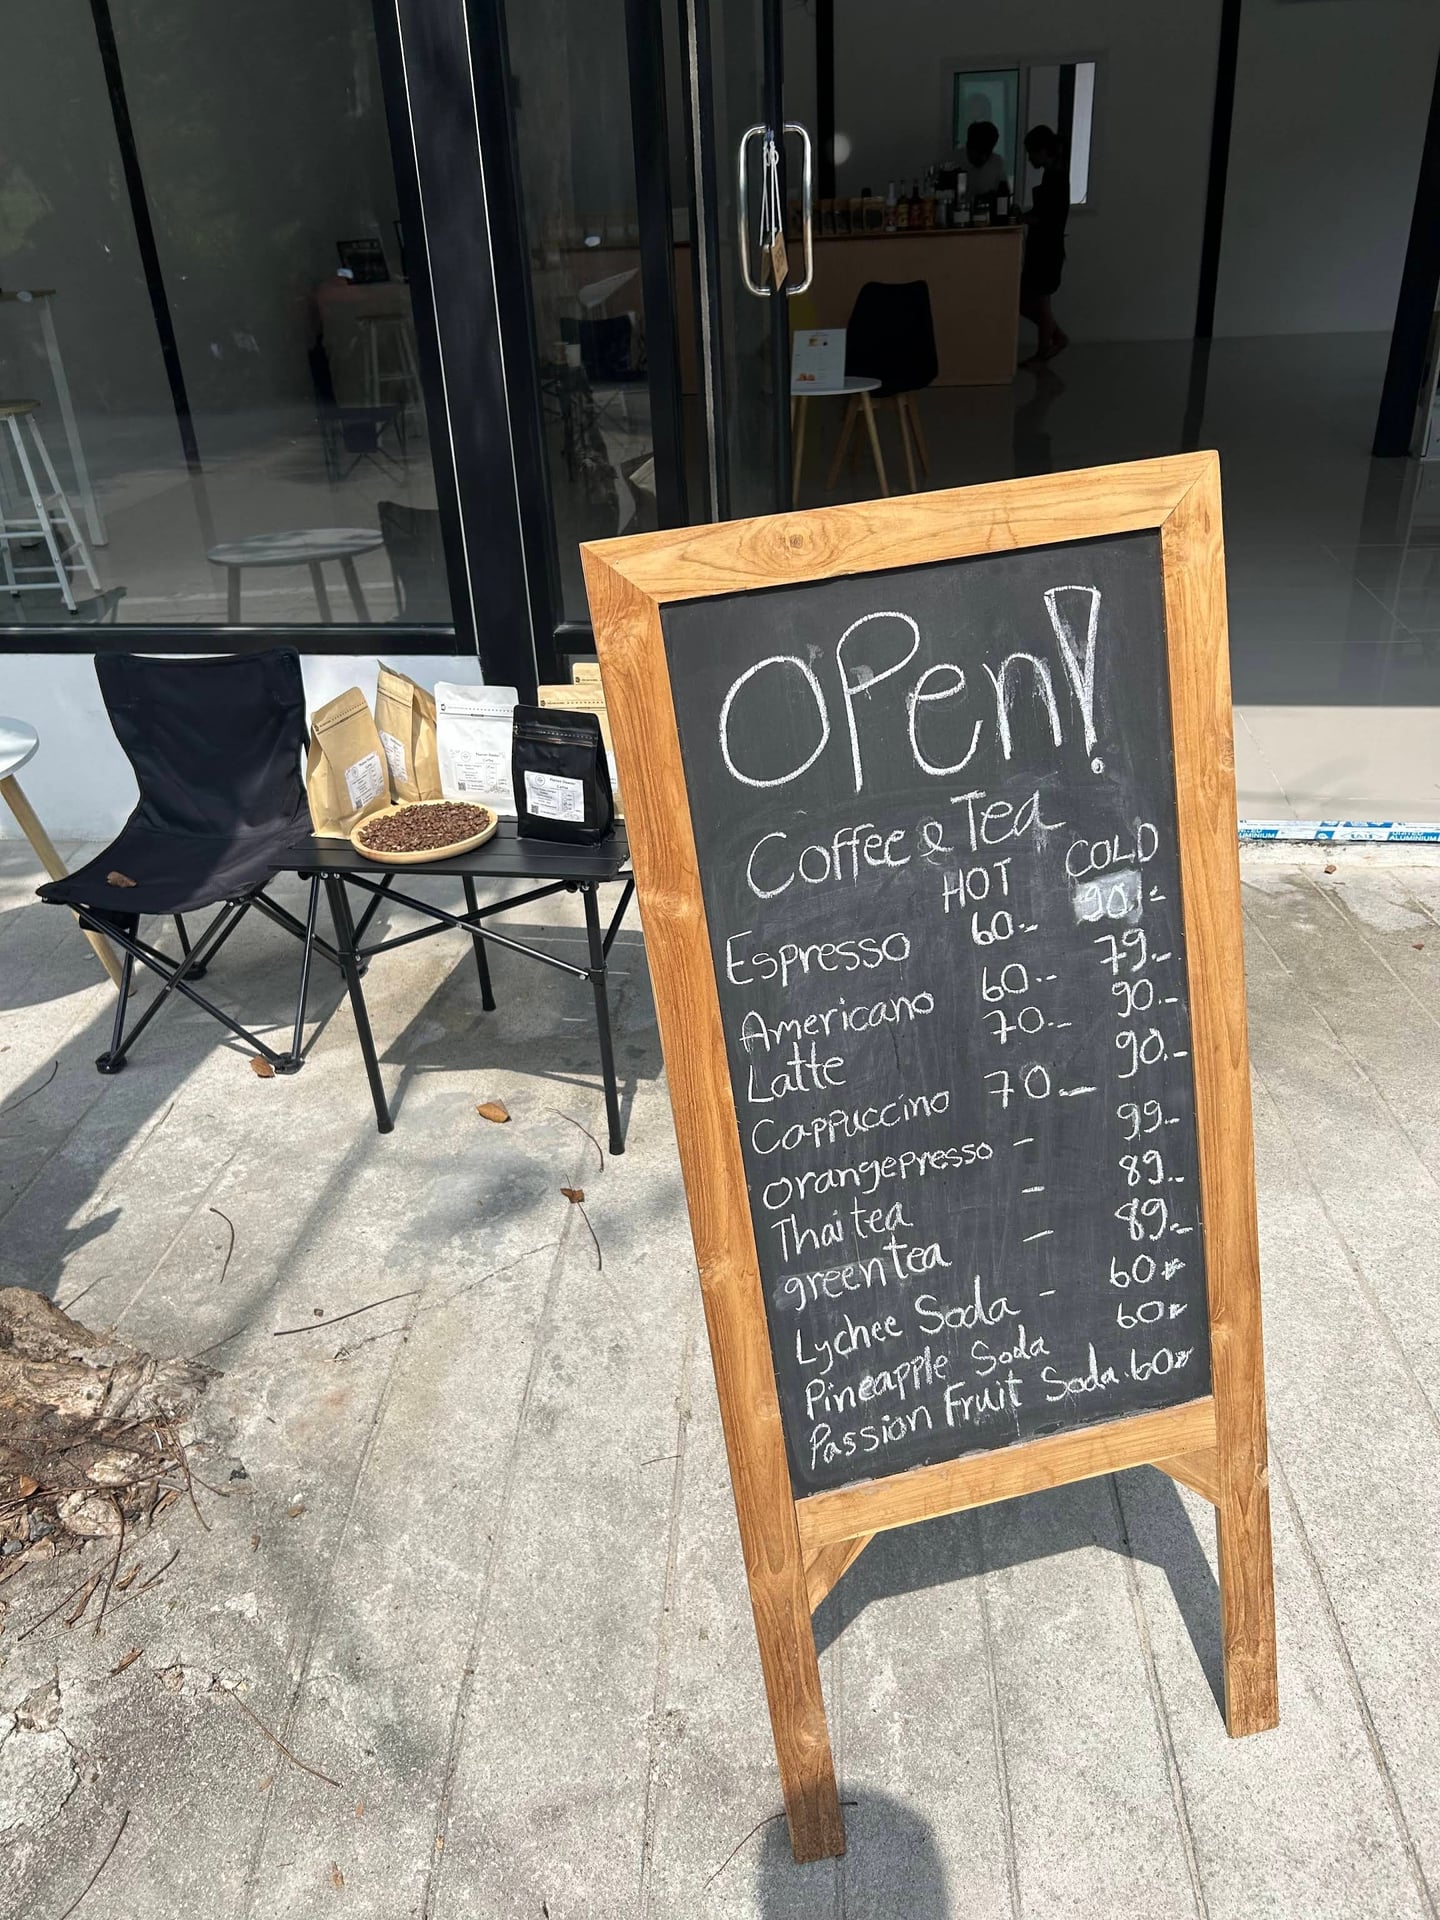 OPen!
Coffee & Tea
HOT COLD
Espresso 60.- 90.-
Americano 60.- 79.-
Latte 70.- 90.-
Cappuccino 70.- 90.-
Orangepresso - 99.-
Thai tea - 89.-
greentea - 89.-
Lychee Soda - 60.-
Pineapple Soda 60.-
Passion Fruit Soda. 60.-
Coffee
ALUMINIUM
ALUMINIUM